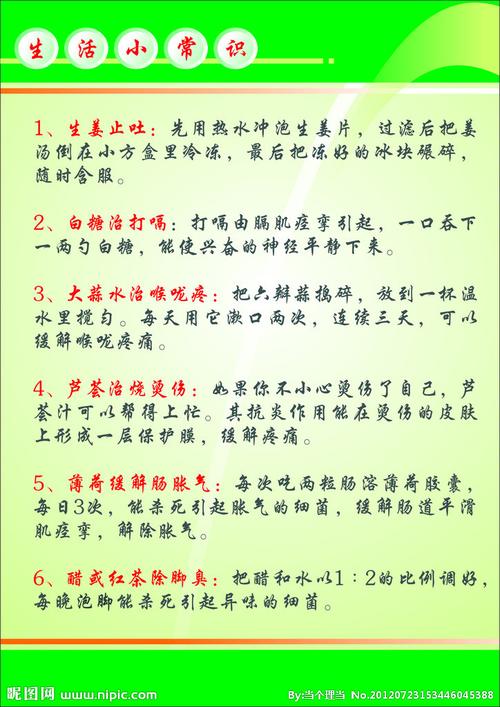 生活小常识
1、生姜止吐：先用热水冲泡生姜片，过滤后把姜
汤倒在小方盒里冷冻，最后把冻好的冰块碾碎，
随时含服。
2、白糖治打嗝：打嗝由膈肌痉挛引起，一口吞下
一两勺白糖，能使兴奋的神经平静下来。
3、大蒜水治喉咙疼：把六瓣蒜捣碎，放到一杯温
水里搅匀。每天用它漱口两次，连续三天，可以
缓解喉咙疼痛。
4、芦荟治烧烫伤：如果你不小心烫伤了自己，芦
荟汁可以帮得上忙。其抗炎作用能在烫伤的皮肤
上形成一层保护膜，缓解疼痛。
5、薄荷缓解肠胀气：每次吃两粒肠溶薄荷胶囊，
每日3次，能杀死引起胀气的细菌，缓解肠道平滑
肌痉挛，解除胀气。
6、醋或红茶除脚臭：把醋和水以1：2的比例调好，
每晚泡脚能杀死引起异味的细菌。
昵图网 www.nipic.com
By:当个理当 No.20120723153446045388